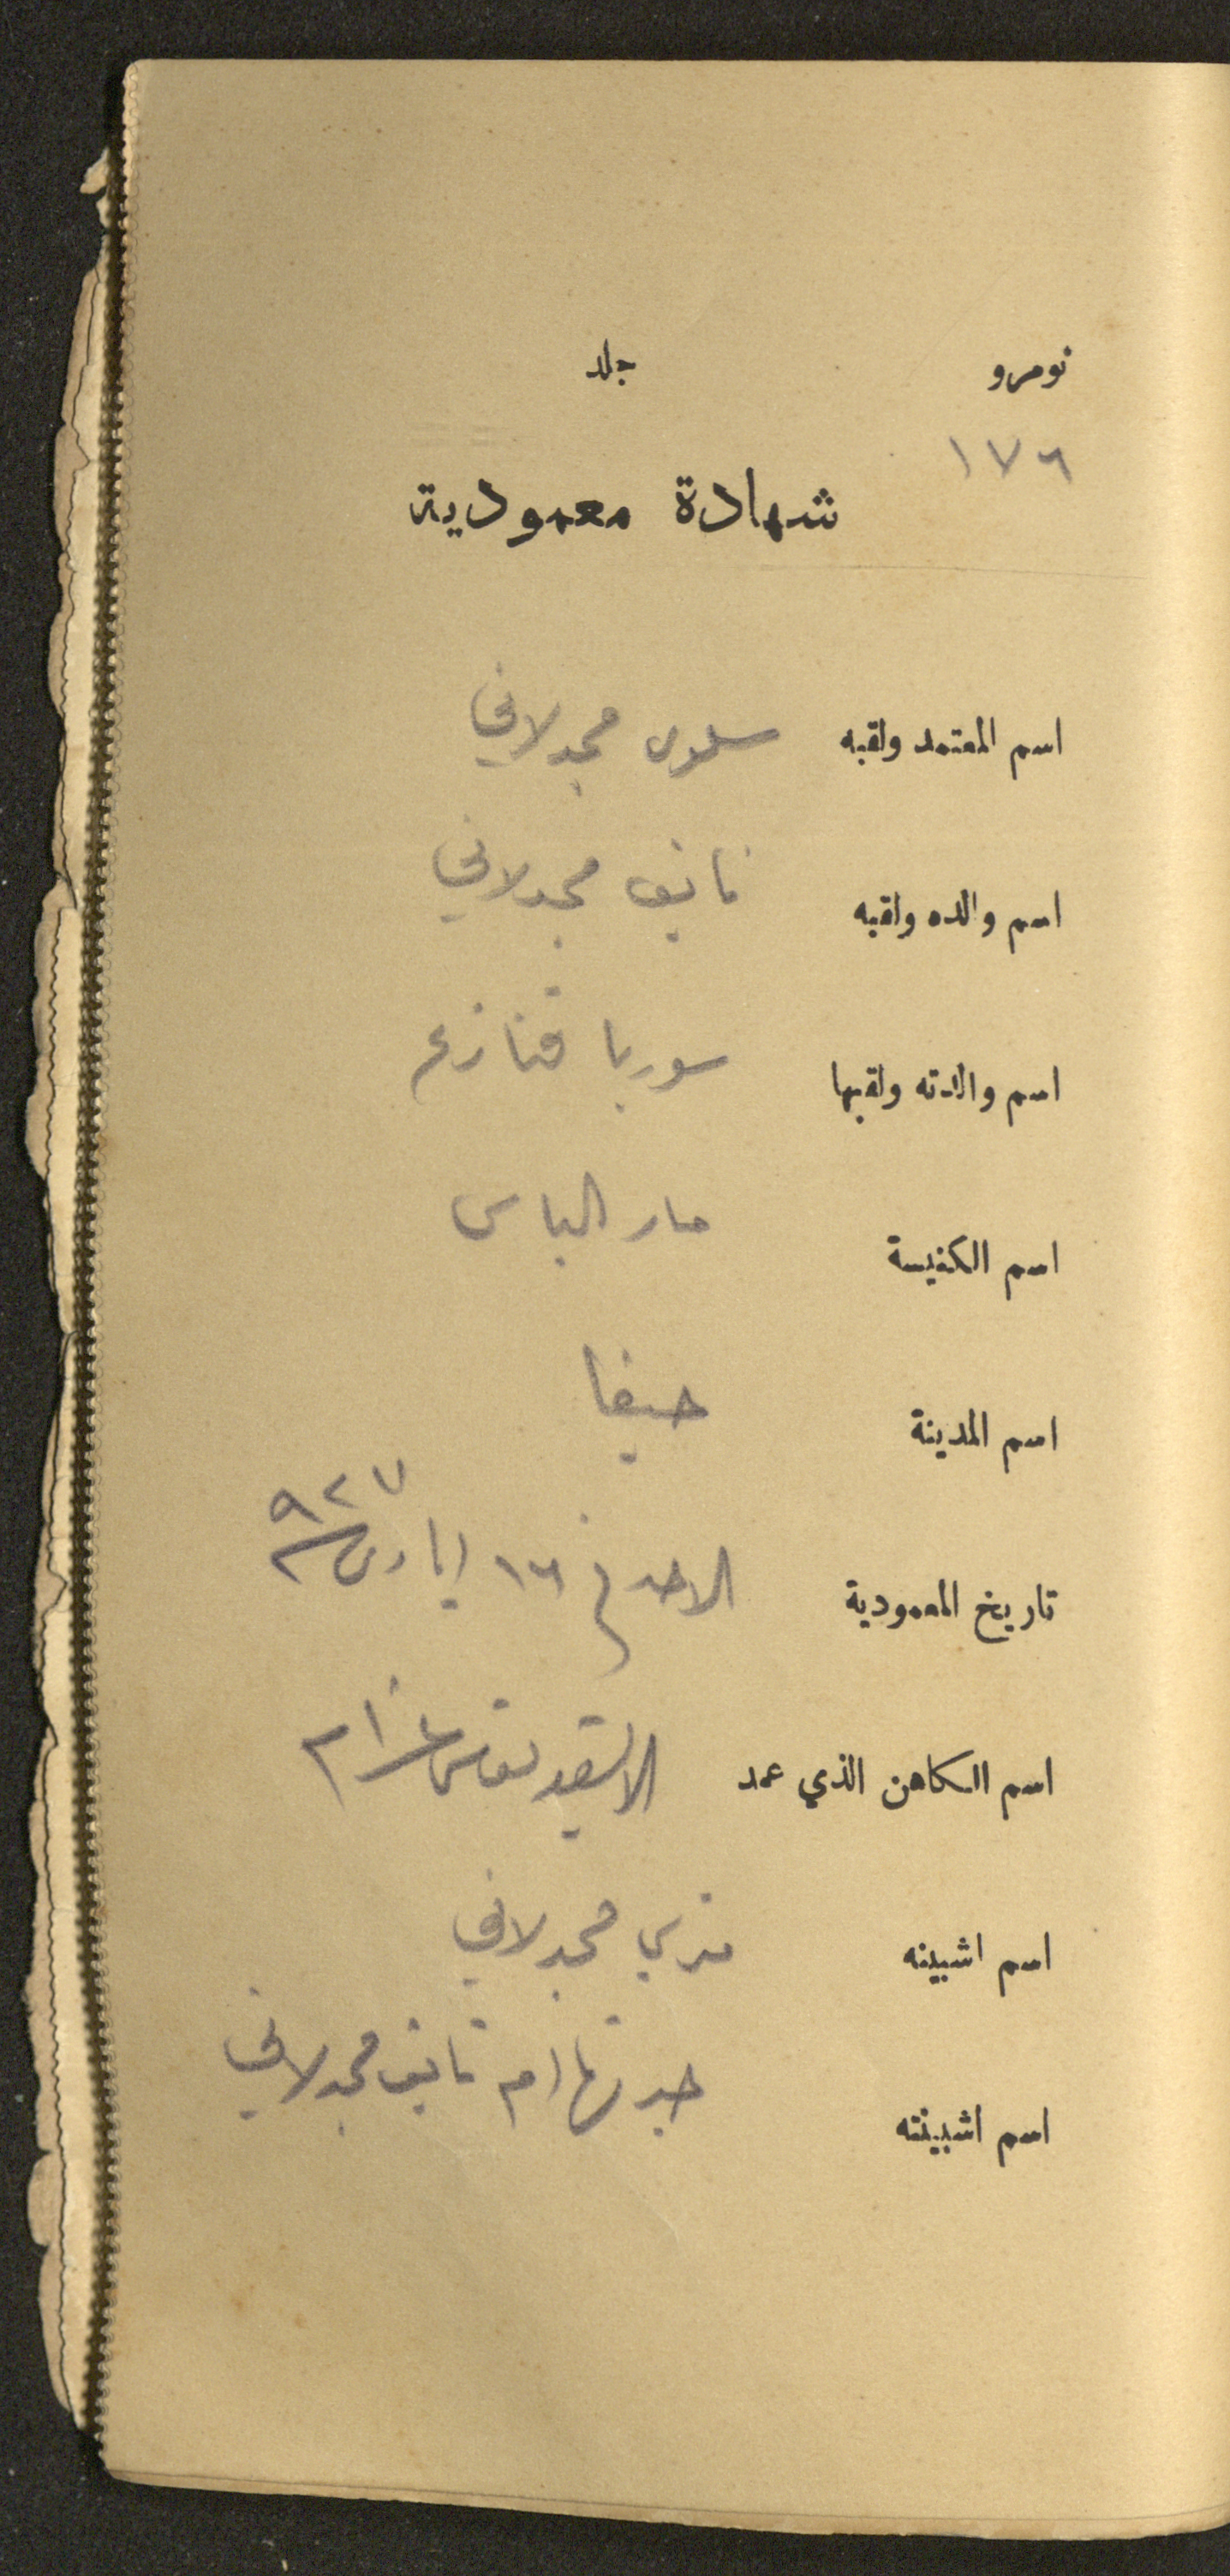 نومرو جلد
١٧٦
شهادة معمودية
اسم المعتمد ولقبه سلوى مجدلاني
اسم والده ولقبه نايف مجدلاني
اسم والدته ولقبها سوريا قنازع
اسم الكنيسة مار الياس
اسم المدينة حيفا
تاريخ المعمودية الاحد في ١٦ ايار سنة ٩٢٧
اسم الكاهن الذي عمد
اسم اشبينه مجدلاني
اسم اشبينته جدتها ام نايف مجدلاني